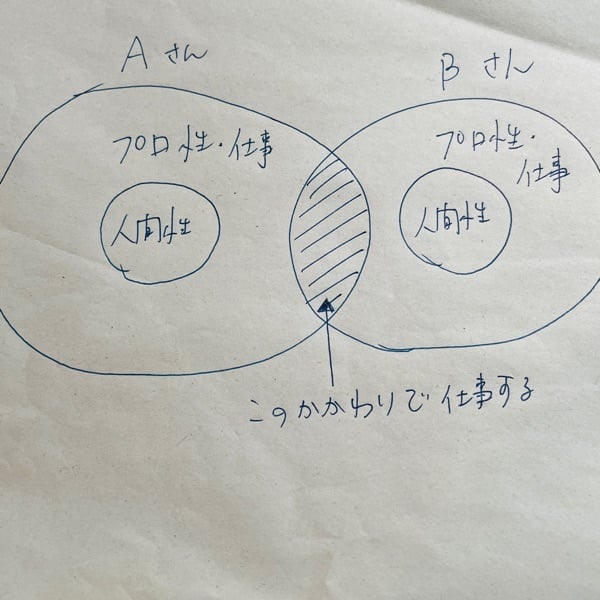 Aさん
Bさん
プロ性・仕事
プロ性・
仕事
人間性
人間性
このかかわりで仕事する